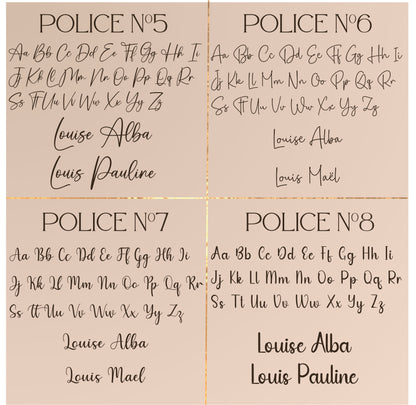 POLICE Nº5
Aa Bb Cc Dd Ee Ff Gg Hh Ii
Jj Kk Ll Mm Nn Oo Pp Qq Rr
Ss Tt Uu Vv Ww Xx Yy Zz
Louise Alba
Louis Pauline
POLICE Nº6
Aa Bb Cc Dd Ee Ff Gg Hh Ii
Jj Kk Ll Mm Nn Oo Pp Qq Rr
Ss Tt Uu Vv Ww Xx Yy Zz
Louise Alba
Louis Maël
POLICE Nº7
Aa Bb Cc Dd Ee Ff Gg Hh Ii
Jj Kk Ll Mm Nn Oo Pp Qq Rr
Ss Tt Uu Vv Ww Xx Yy Zz
Louise Alba
Louis Mael
POLICE Nº8
Aa Bb Cc Dd Ee Ff Gg Hh Ii
Jj Kk Ll Mm Nn Oo Pp Qq Rr
Ss Tt Uu Vv Ww Xx Yy Zz
Louise Alba
Louis Pauline